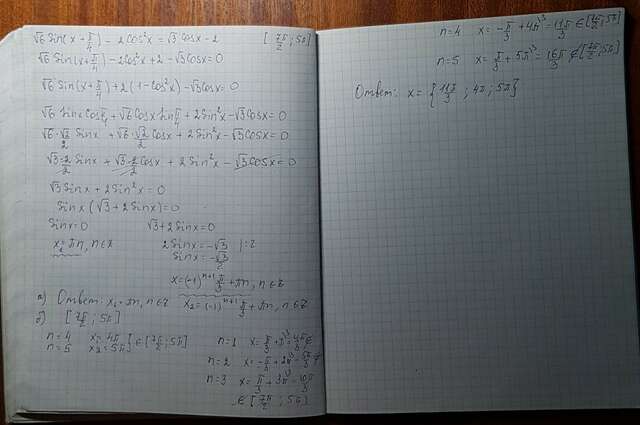 √6 sin(x + π/4) - 2cos²x = √3 cosx - 2 [7π/2; 5π]
√6 sin(x + π/4) - 2cos²x + 2 - √3cosx = 0
√6 sin(x + π/4) + 2(1 - cos²x) - √3cosx = 0
√6 sinx cos π/4 + √6 cosx sin π/4 + 2sin²x - √3cosx = 0
√6 · √2/2 sinx + √6 · √2/2 cosx + 2sin²x - √3cosx = 0
√3·2/2 sinx + √3·2/2 cosx + 2sin²x - √3cosx = 0
√3 sinx + 2sin²x = 0
sinx (√3 + 2sinx) = 0
sinx = 0 √3 + 2sinx = 0
x₁ = πn, n∈Z 2sinx = -√3 |:2
sinx = -√3/2
x = (-1)ⁿ⁺¹ π/3 + πn, n∈Z
а) Ответ: x₁ = πn, n∈Z x₂ = (-1)ⁿ⁺¹ π/3 + πn, n∈Z
б) [7π/2; 5π]
n=4 x=4π } ∈ [7π/2; 5π]
n=5 x₂=5π
n=1 x = π/3 + π = 4π/3 ∉
n=2 x = -π/3 + 2π
n=3 x = π/3 + 3π = 10π/3
∉ [7π/2; 5π]
n=4 x = -π/3 + 4π = 11π/3 ∈ [7π/2; 5π]
n=5 x = π/3 + 5π = 16π/3 ∉ [7π/2; 5π]
Ответ: x = {11π/3; 4π; 5π}